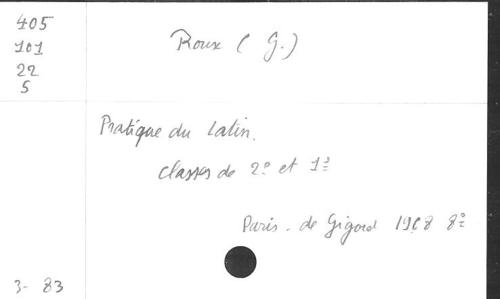 405
101
22
5
Roux ( G.)
Pratique du Latin.
Classes de 2e et 1e
Paris. de Gigord 1968 8º
3- 83